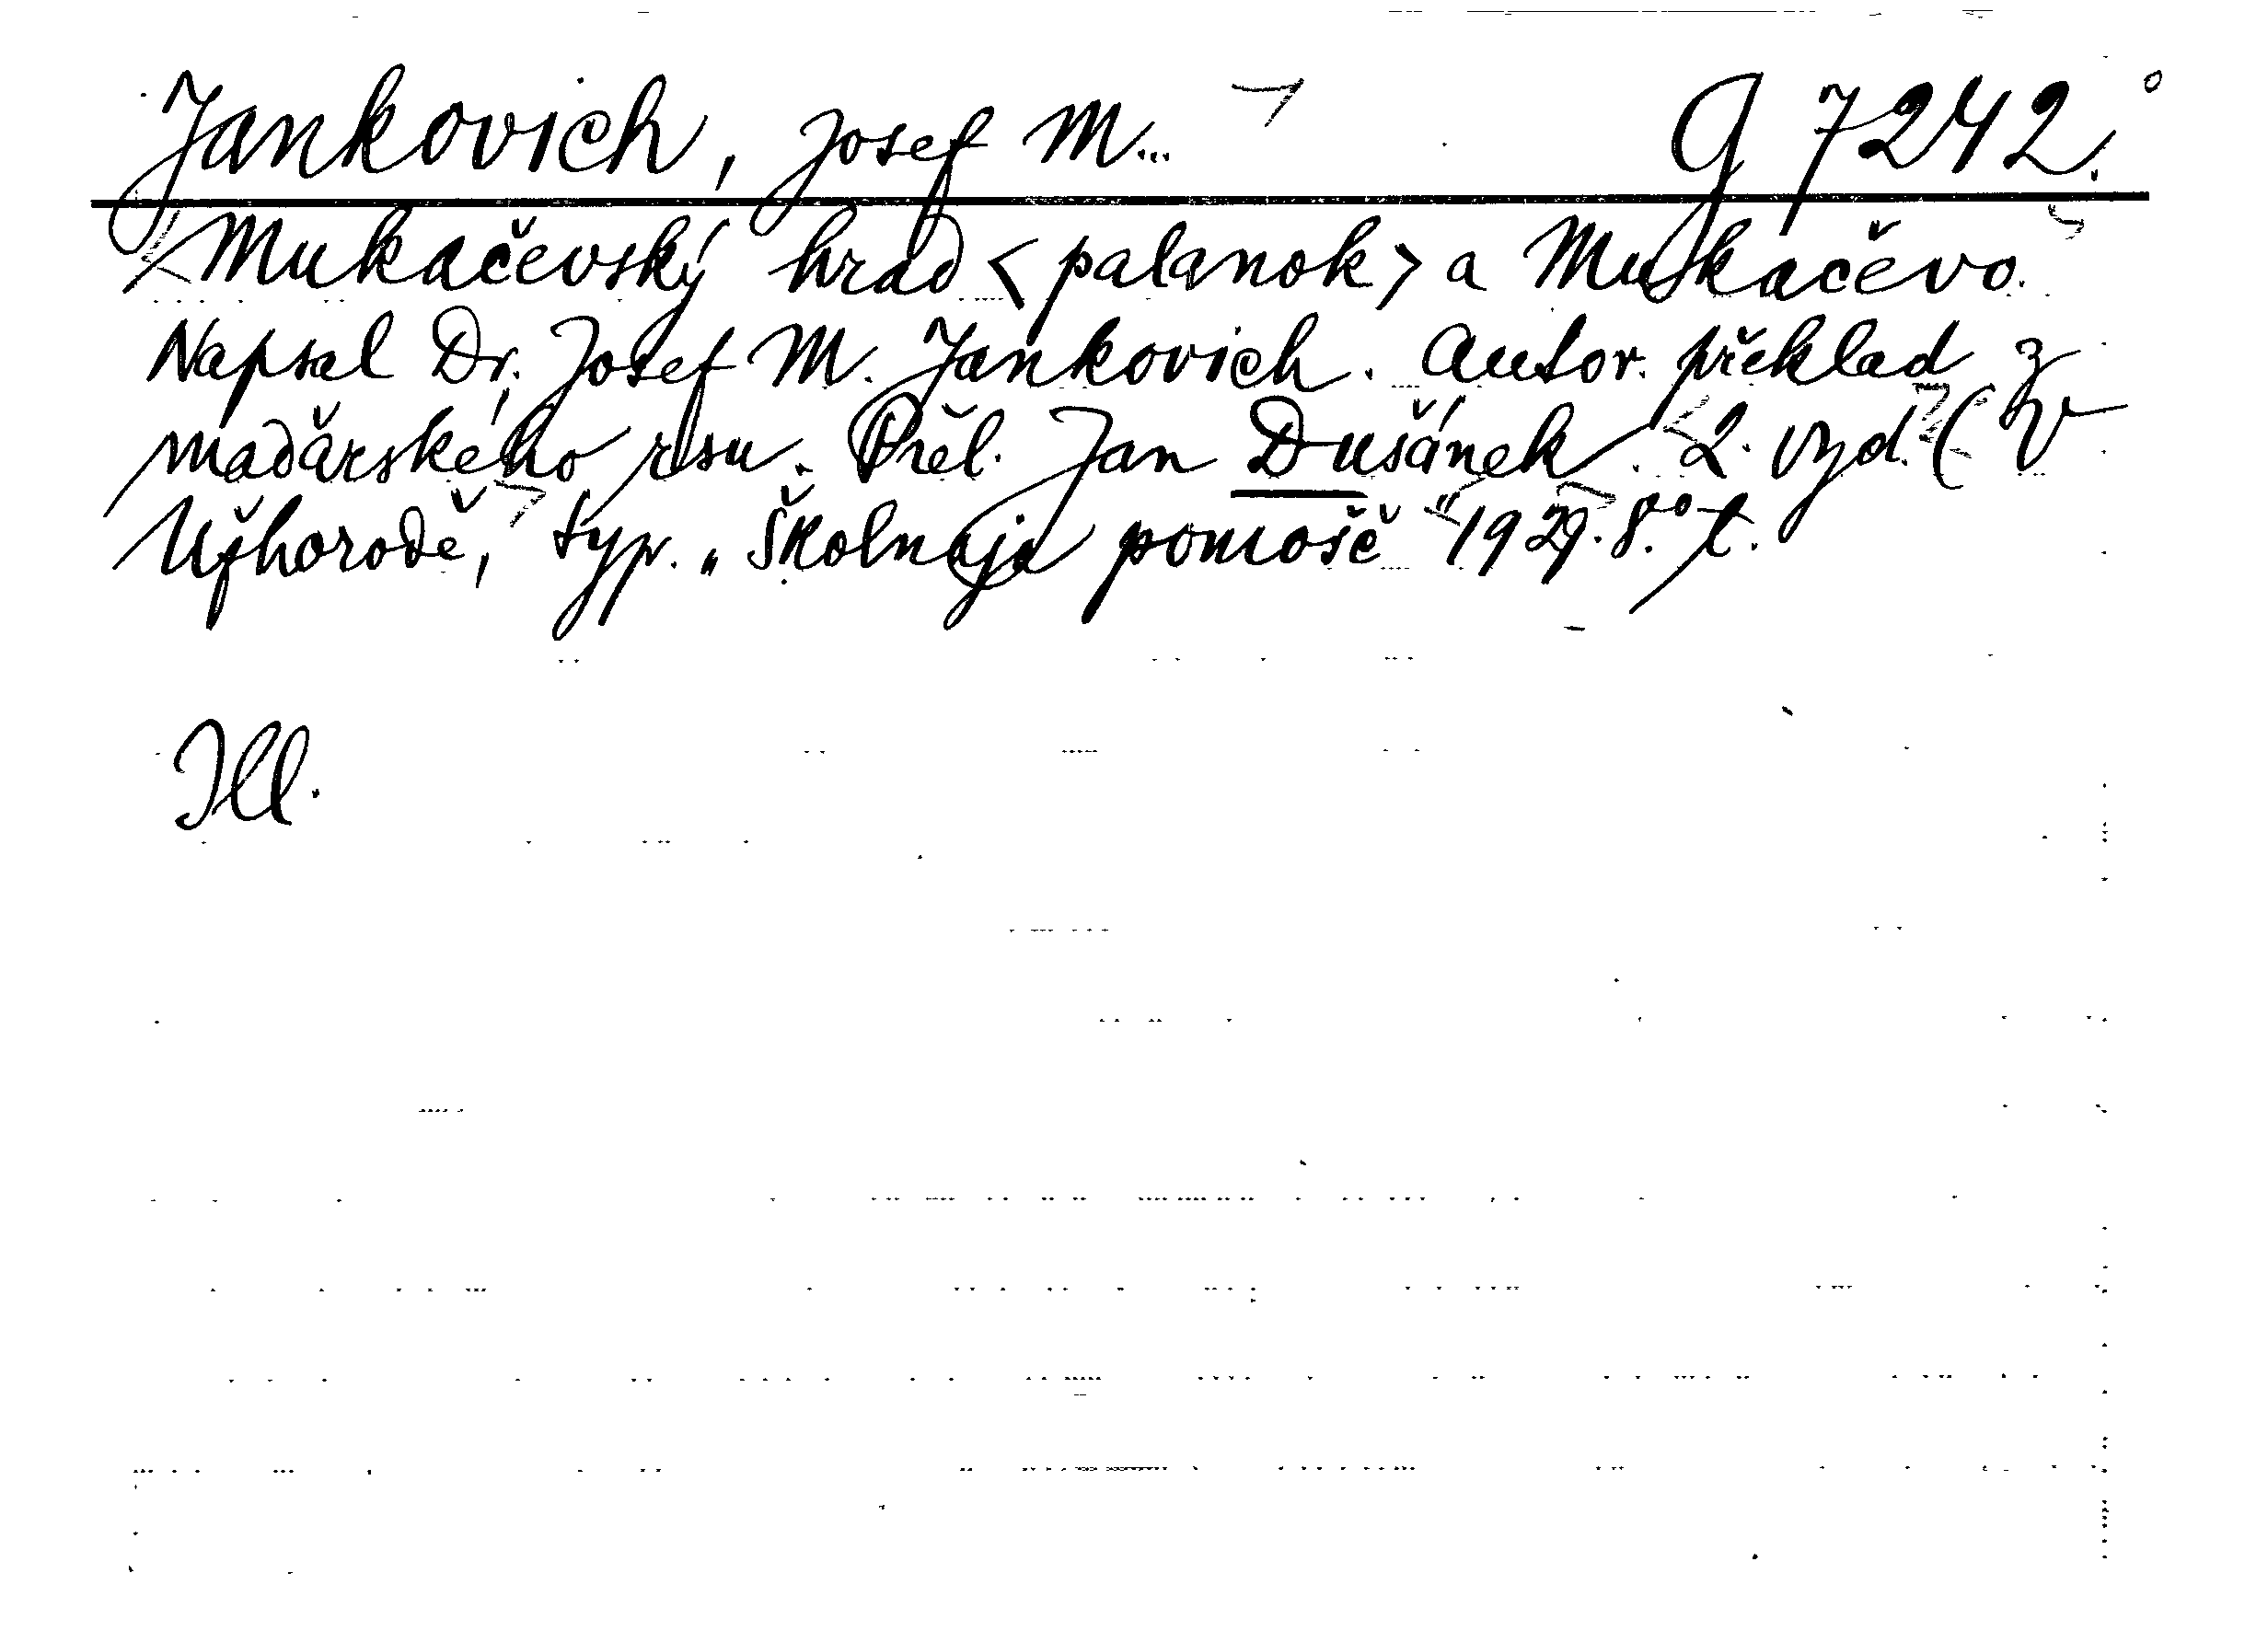 Jankovich, Josef M... G 7242.
Mukačevský hrad <palanok> a Mukačevo.
Napsal Dr. Josef M. Jankovich. Autor. překlad z
maďarského rksu. Přel. Jan Dušánek. 2. vyd. (V
Užhorodě, typ. „Školnaja pomošč" 1929. 8.° t.
Ill.